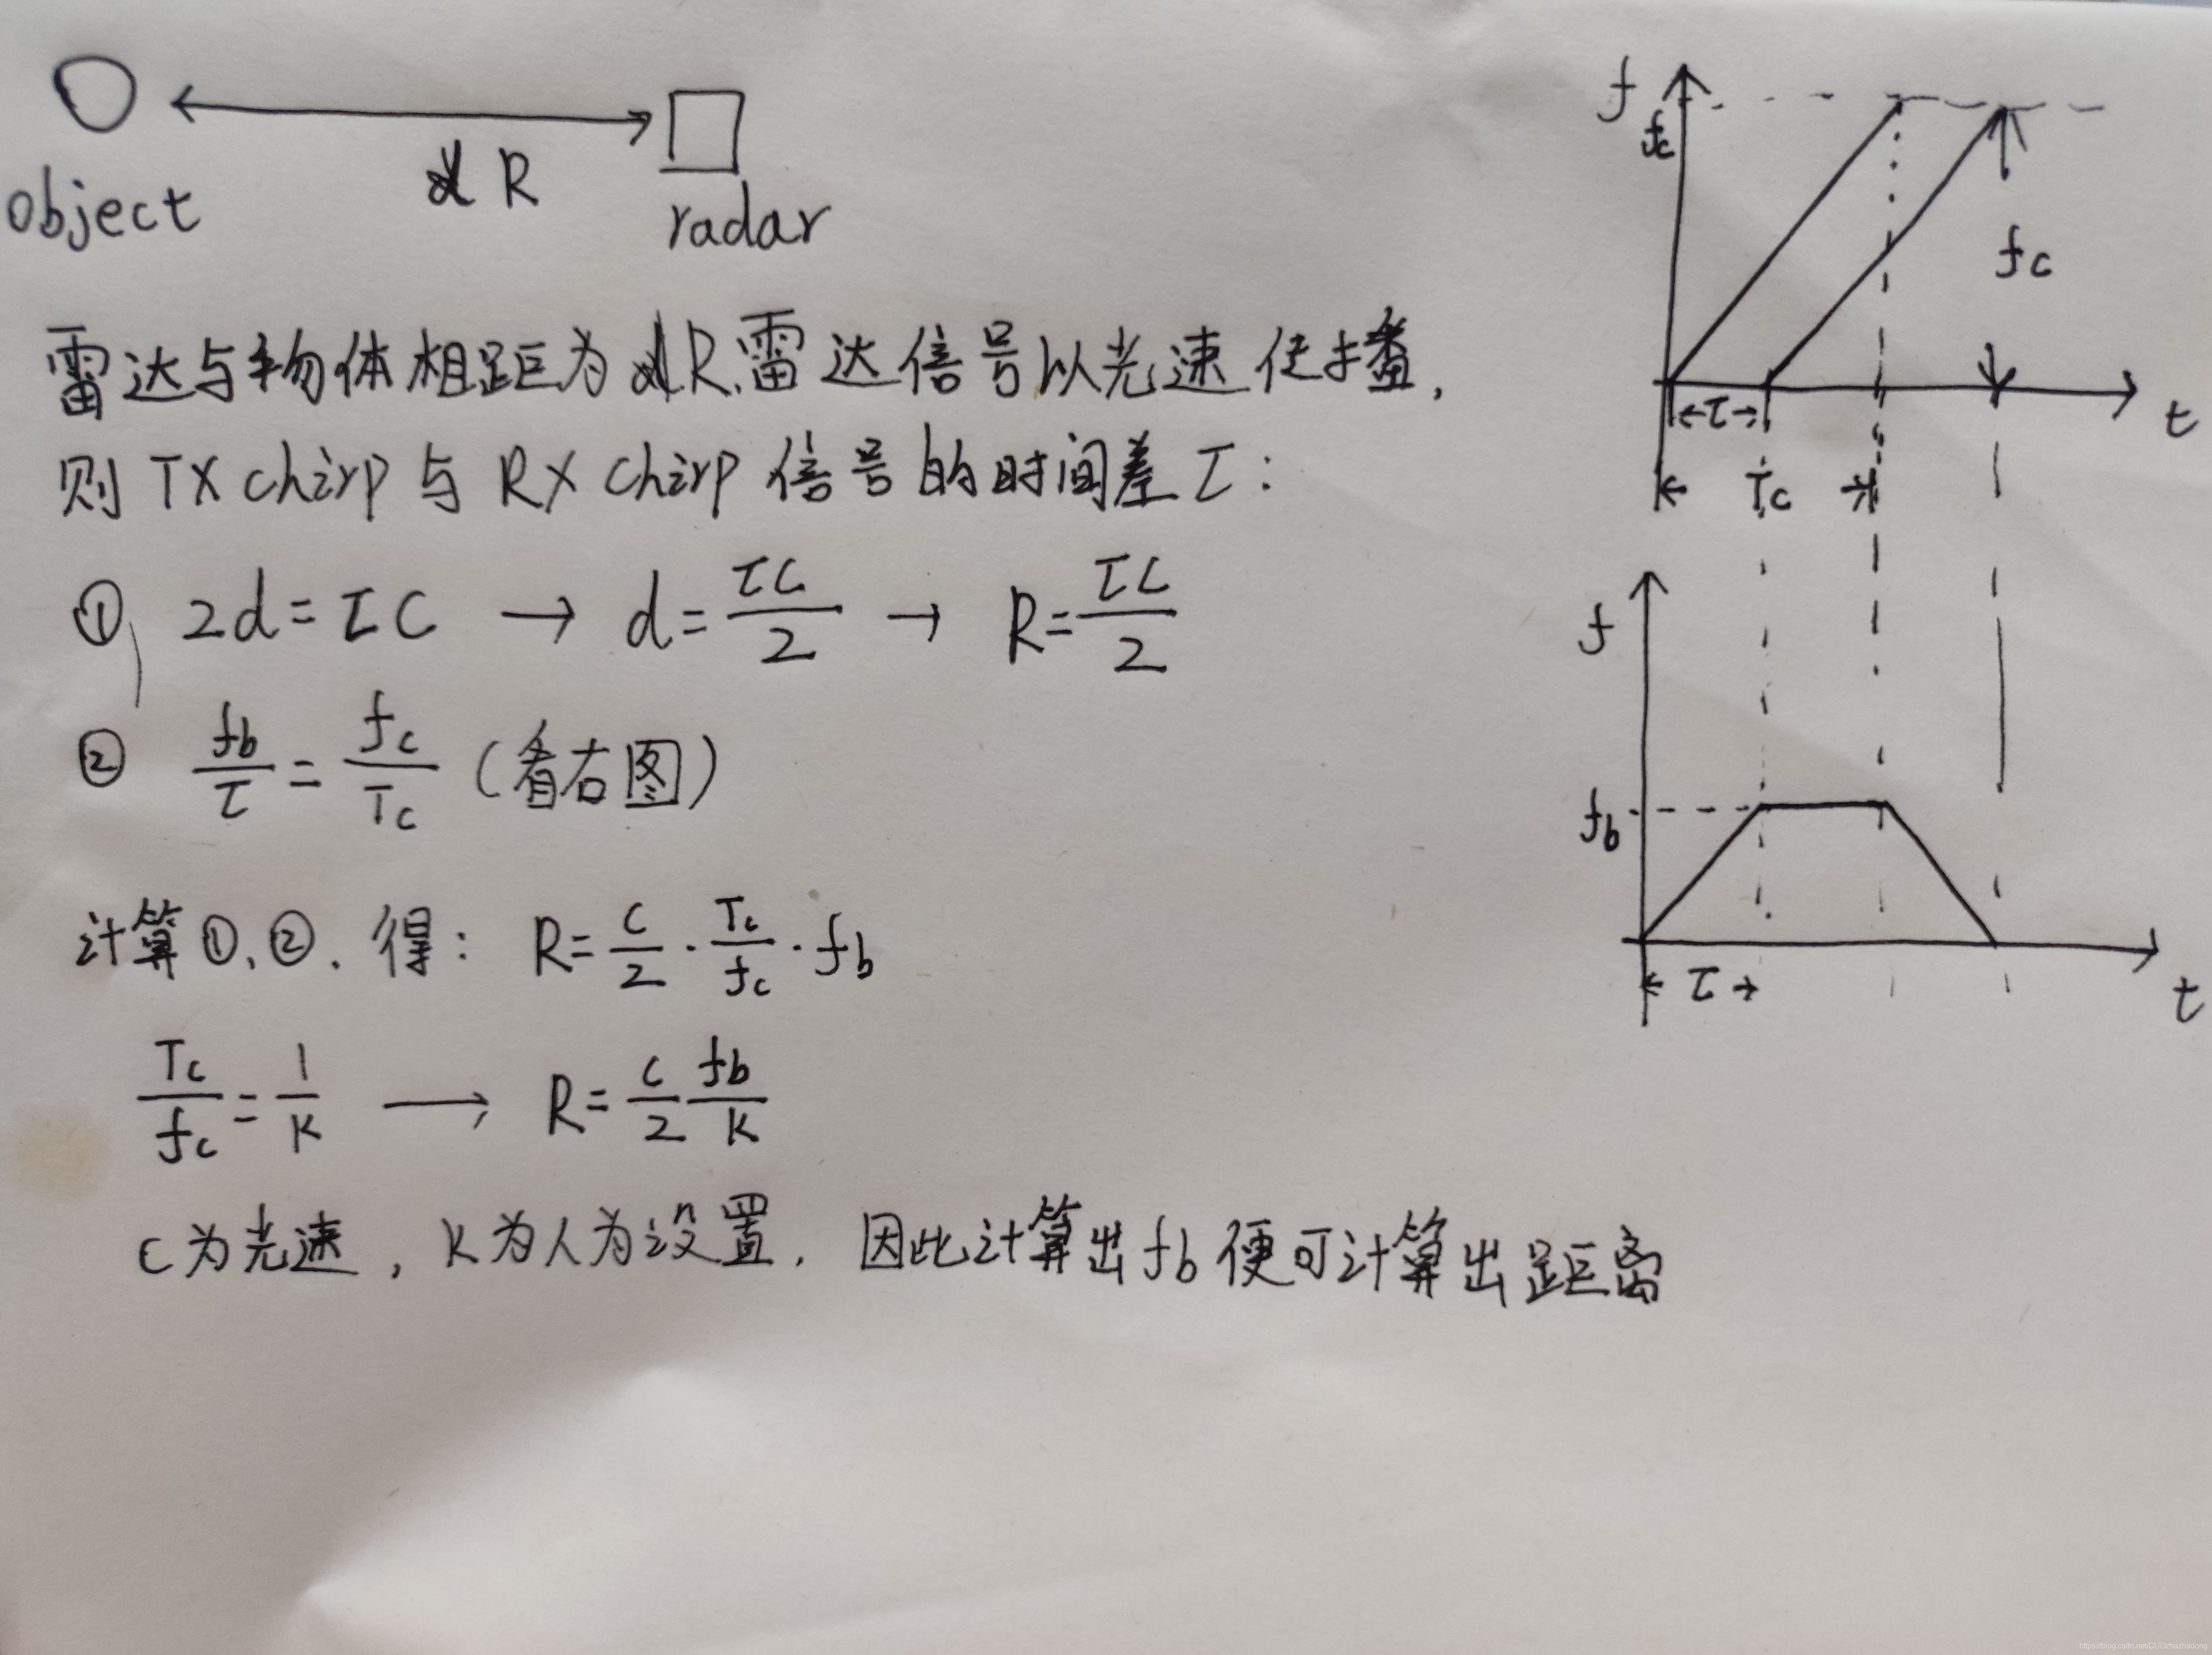 object
R
radar
雷达与物体相距为R,雷达信号以光速传播,
则 TX chirp 与 RX chirp 信号的时间差 τ:
① 2d=τC → d=τC/2 → R=τC/2
② fb/τ = fc/Tc (看右图)
计算①、②. 得: R=C/2·Tc/fc·fb
Tc/fc=1/K → R=C/2 fb/K
C为光速, K为人为设置. 因此计算出fb便可计算出距离
f
fc
fc
←τ→
t
← Tc →
f
fb
← τ →
t
https://blog.csdn.net/CUGzhazhadong